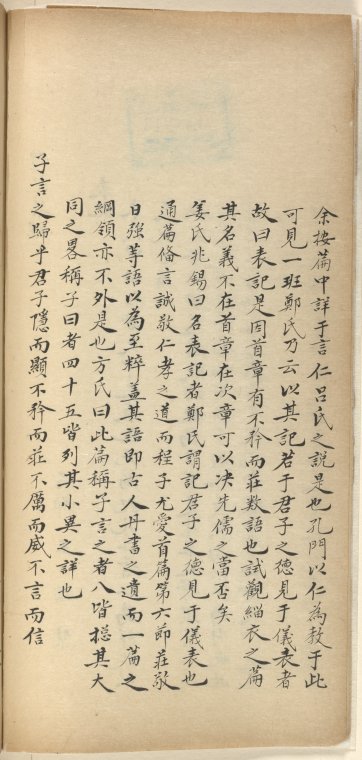 余按篇中詳于言仁呂氏之説是也孔門以仁為教于此
可見一班鄭氏乃云以其記若于君子之徳見于儀表者
故曰表記是因首章有不矜而莊数語也試觀緇衣之篇
其名義不在首章在次章可以决先儒之當否矣
姜氏兆錫曰名表記者鄭氏謂記君子之徳見于儀表也
通篇俻言誠敬仁孝之道而程子尤愛首篇第六節莊敬
日強等語以為至粹盖其語即古人丹書之遺而一篇之
綱領亦不外是也方氏曰此篇稱子言之者八皆揔其大
同之畧稱子曰者四十五皆列其小異之詳也
子言之歸乎君子隱而顯不矜而莊不厲而威不言而信